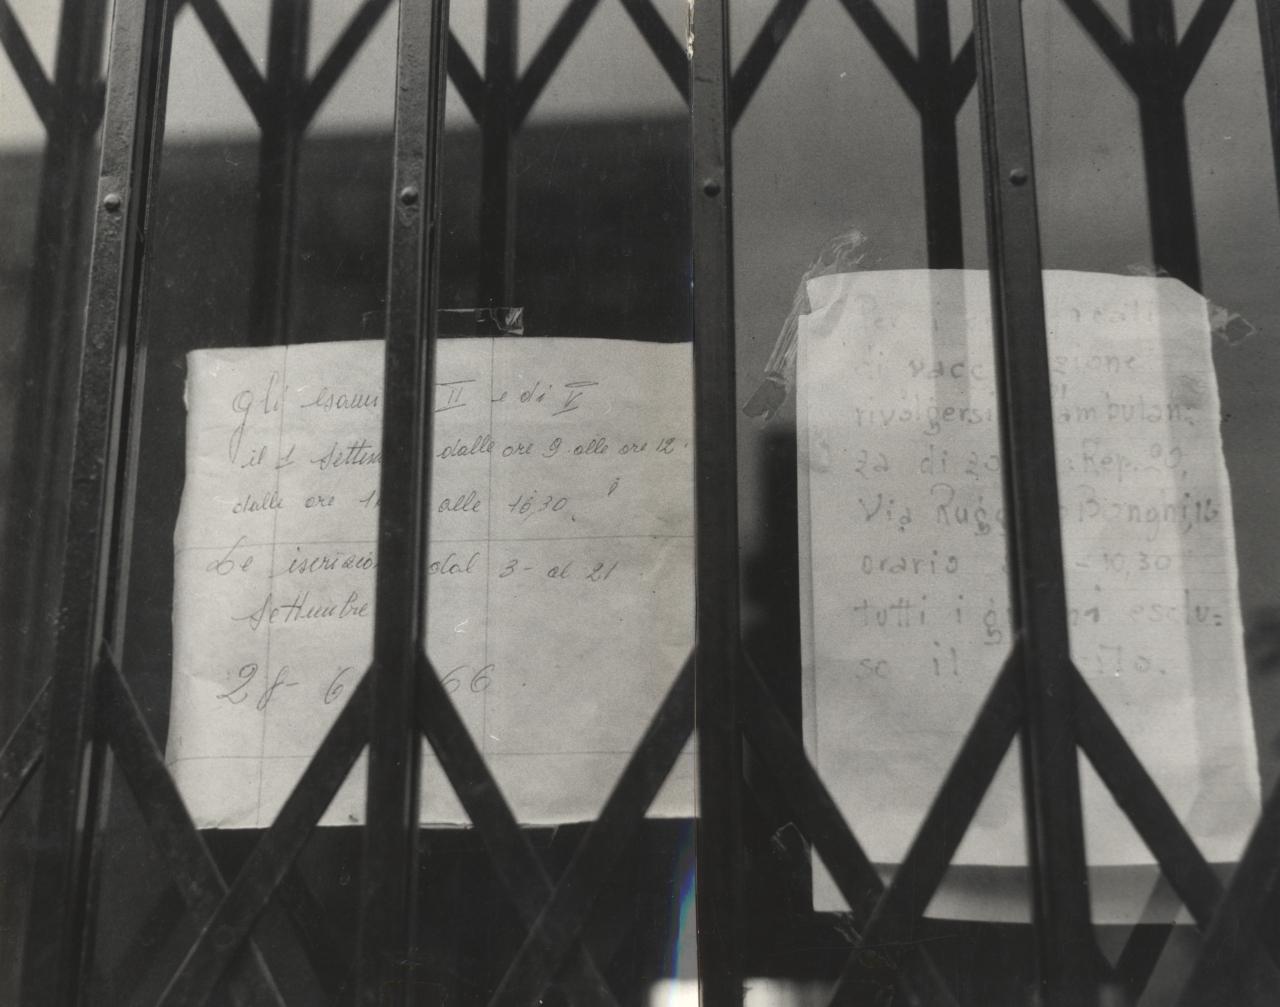 gli esami II e di V
il 1 Settem dalle ore 9 alle ore 12
dalle ore alle 16,30
Le iscrizio dal 3 - al 21
Settembre
28 - 6 66
di vacc zione
rivolgersi ambulan=
za di zo Rep.
Via Rugg Bonghi, 16
orario - 10,30
tutti i g ni esclu=
so il